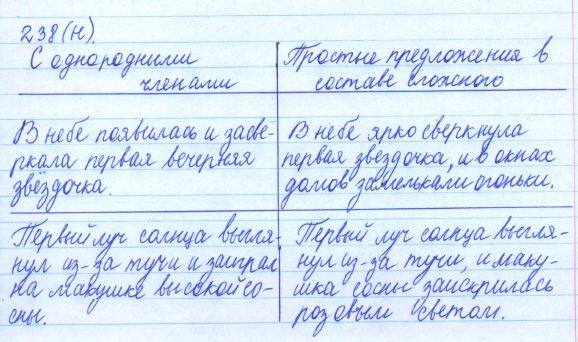 238(н).
С однородными
членами
Простые предложения в
составе сложного
В небе появилась и засве-
ркала первая вечерняя
звёздочка.
В небе ярко сверкнула
первая звёздочка, и в окнах
домов замелькали огоньки.
Первый луч солнца выгля-
нул из-за тучи и заиграл
на макушке высокой со-
сны.
Первый луч солнца выгля-
нул из-за тучи, и маку-
шка сосны заискрилась
розовым светом.